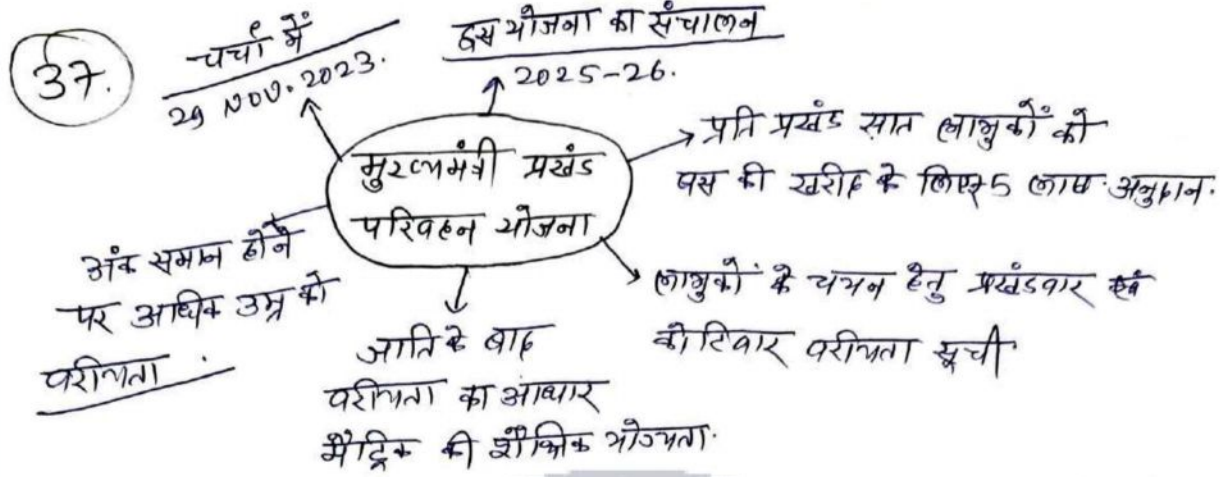 37.
चर्चा में
29 NOV. 2023.
इस योजना का संचालन
2025-26.
मुख्यमंत्री प्रखंड
परिवहन योजना
प्रति प्रखंड सात लाभुकों को
बस की खरीद के लिए 5 लाख अनुदान.
लाभुकों के चयन हेतु प्रखंडवार एवं
कोटिवार वरीयता सूची
जाति के बाद
वरीयता का आधार
मैट्रिक की शैक्षिक योग्यता.
अंक समान होने
पर अधिक उम्र को
वरीयता.